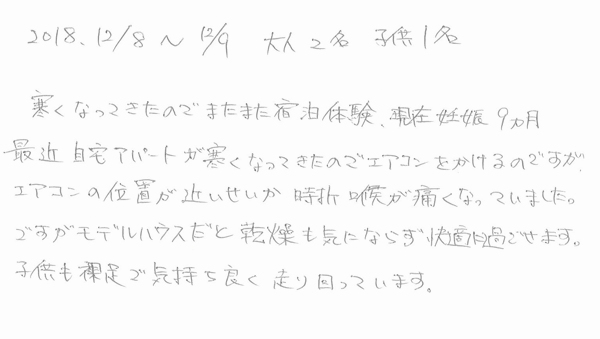 2018.12/8 〜 12/9 大人2名 子供1名
寒くなってきたのでまたまた宿泊体験、現在妊娠9カ月
最近自宅アパートが寒くなってきたのでエアコンをかけるのですが、
エアコンの位置が近いせいか時折喉が痛くなっていました。
ですがモデルハウスだと乾燥も気にならず、快適に過ごせます。
子供も裸足で気持ち良く走り回っています。